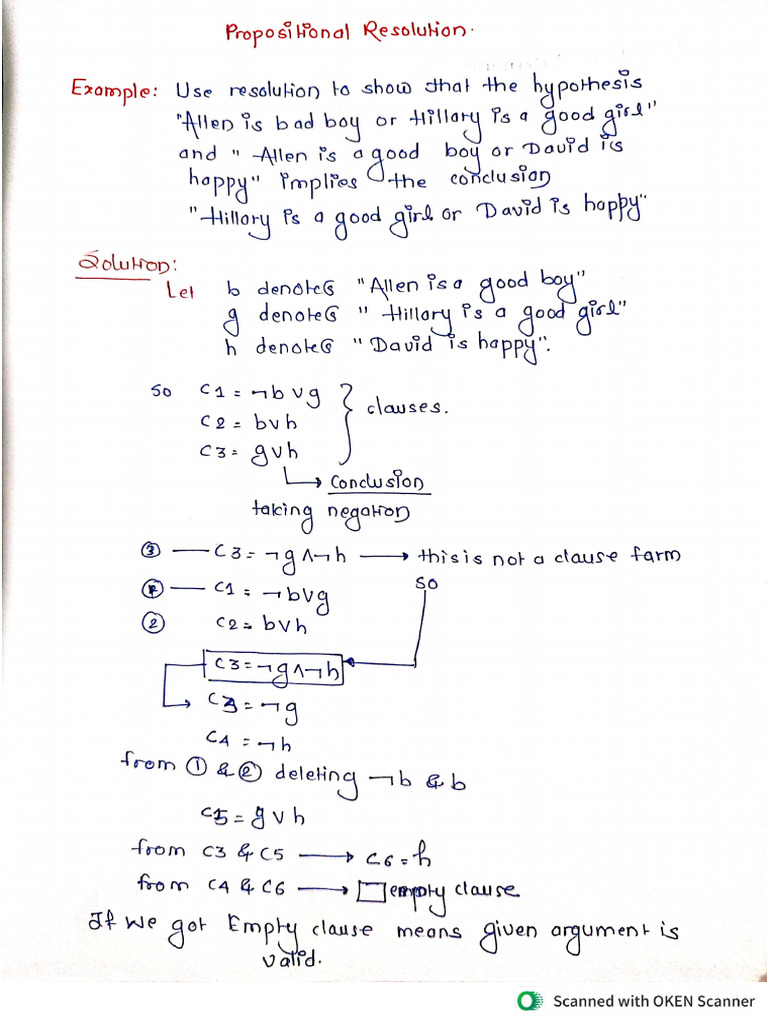 Propositional Resolution.
Example: Use resolution to show that the hypothesis
"Allen is bad boy or Hillary is a good girl"
and " Allen is a good boy or David is
happy" implies the conclusion
"Hillary is a good girl or David is happy"
Solution:
Let b denotes "Allen is a good boy"
g denotes " Hillary is a good girl"
h denotes "David is happy".
so C1 = ¬b∨g
C2 = b∨h
C3 = g∨h
clauses.
Conclusion
taking negation
③ — C3 = ¬g∧¬h → this is not a clause farm
— C1 = ¬b∨g
so
② C2 = b∨h
C3 = ¬g∧¬h
C3 = ¬g
C4 = ¬h
from ① & ② deleting ¬b & b
C5 = g∨h
from C3 & C5 → C6 = h
from C4 & C6 → □ empty clause
If we got Empty clause means given argument is
valid.
Scanned with OKEN Scanner